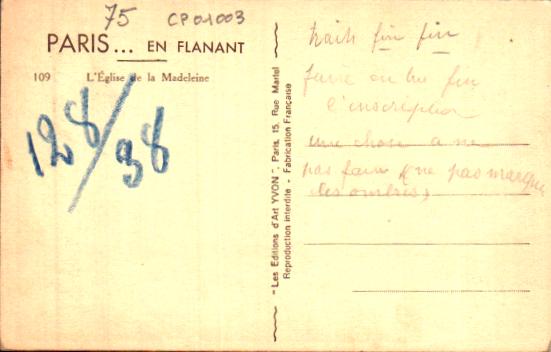 75 CP01003
PARIS... EN FLANANT
109 L'Église de la Madeleine
128/38
"Les Editions d'Art YVON", Paris, 15, Rue Martel
Reproduction interdite - Fabrication Française
traits fin fin
faire ou fin
l'inscription
une chose a ne
pas faire (ne pas marquer
les ombres)